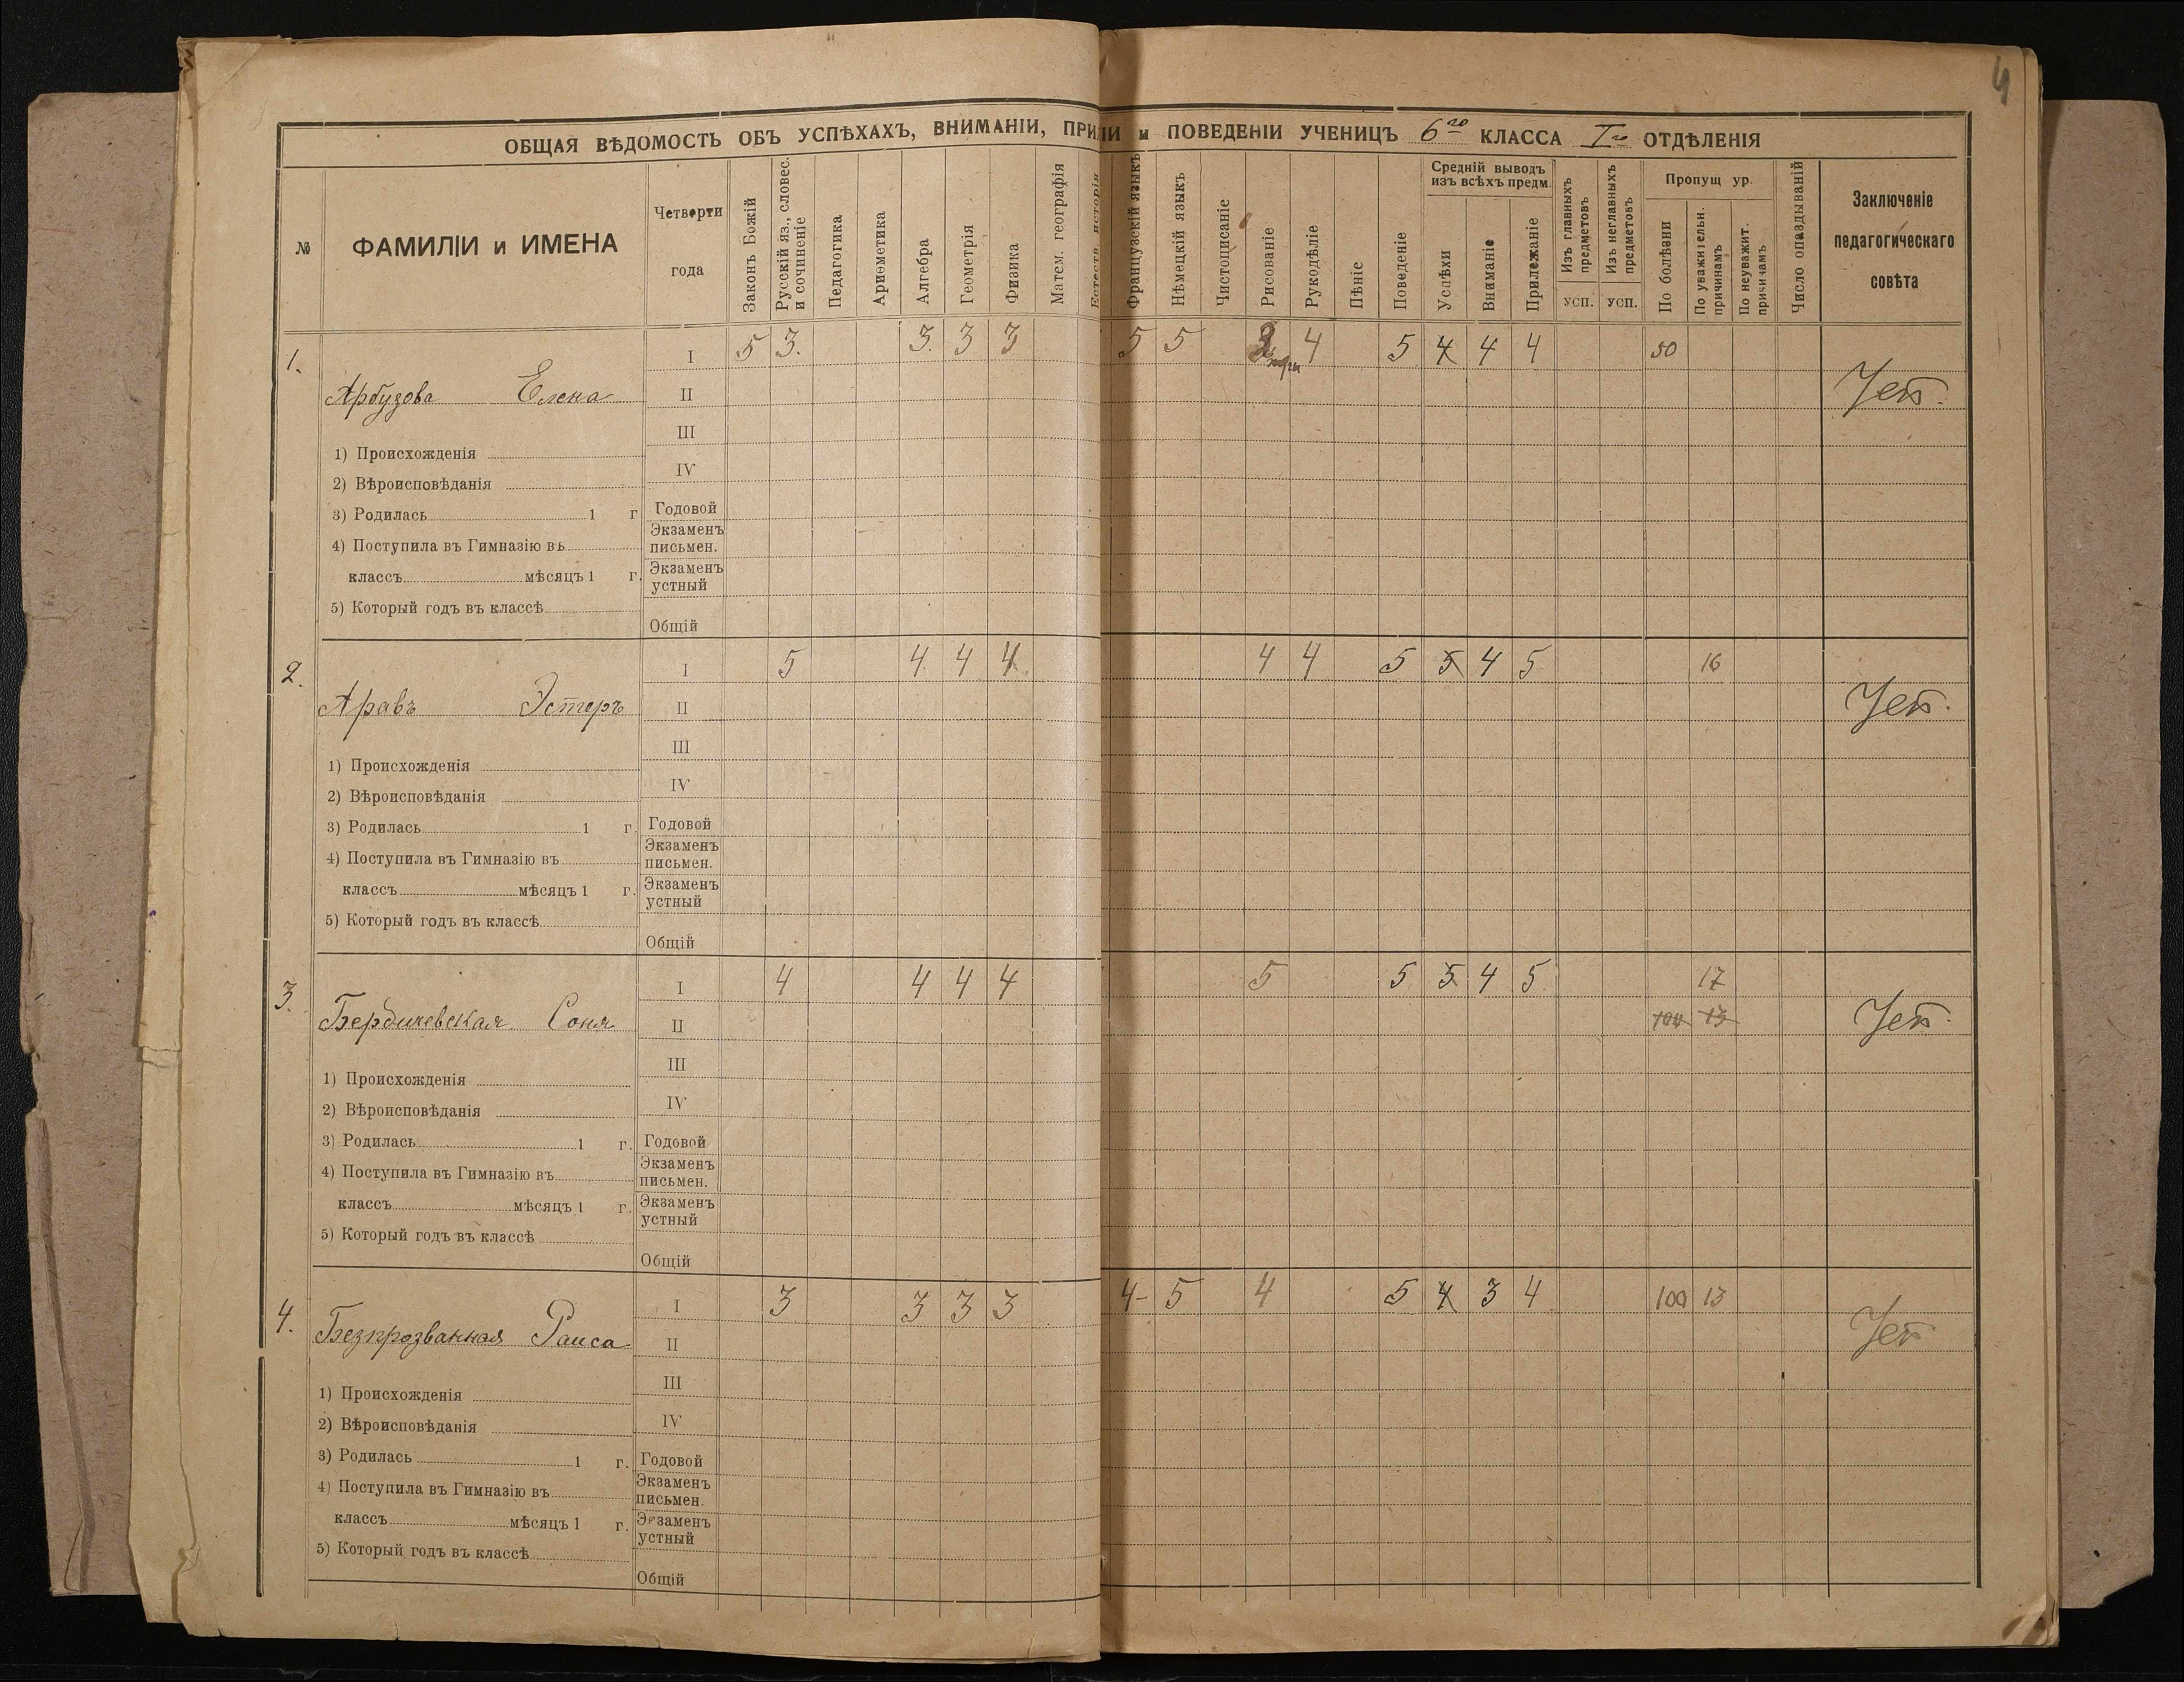 4
ОБЩАЯ ВѢДОМОСТЬ ОБЪ УСПѢХАХЪ, ВНИМАНІИ, ПРИ ИИ и ПОВЕДЕНІИ УЧЕНИЦЪ 6го КЛАССА Iго ОТДѢЛЕНІЯ
№ ФАМИЛІИ и ИМЕНА Четверти года Законъ Божій Русскій яз., словес. и сочиненіе Педагогика Ариѳметика Алгебра Геометрія Физика Матем. географія Естеств. исторія Французскій языкъ Нѣмецкій языкъ Чистописаніе Рисованіе Рукодѣліе Пѣніе Поведеніе Средній выводъ изъ всѣхъ предм. Успѣхи Вниманіе Прилежаніе Изъ главныхъ предметовъ усп. Изъ неглавныхъ предметовъ усп. Пропущ ур. По болѣзни По уважительн. причинамъ По неуважит. причинамъ Число опаздываній Заключеніе педагогическаго совѣта
1. I 5 3. 3. 3 3 5 5 3 4 5 4 4 4 50
Арбузова Елена II
III
1) Происхожденія
IV
2) Вѣроисповѣданія
3) Родилась 1 г Годовой
4) Поступила въ Гимназію въ Экзаменъ письмен.
классъ мѣсяцъ 1 г. Экзаменъ устный
5) Который годъ въ классѣ
Общій
2. I 5 4 4 4 4 4 5 5 4 5 16
Аравъ Эстеръ II
III
1) Происхожденія
IV
2) Вѣроисповѣданія
3) Родилась 1 г. Годовой
4) Поступила въ Гимназію въ Экзаменъ письмен.
классъ мѣсяцъ 1 г. Экзаменъ устный
5) Который годъ въ классѣ
Общій
3. I 4 4 4 4 5 5 5 4 5 17
Бердичевская Соня II 100 13
III
1) Происхожденія
IV
2) Вѣроисповѣданія
3) Родилась 1 г. Годовой
4) Поступила въ Гимназію въ Экзаменъ письмен.
классъ мѣсяцъ 1 г. Экзаменъ устный
5) Который годъ въ классѣ
Общій
4. I 3 3 3 3 4- 5 4 5 4 3 4 100 13
Безпрозванная Раиса II
III
1) Происхожденія
IV
2) Вѣроисповѣданія
3) Родилась 1 г. Годовой
4) Поступила въ Гимназію въ Экзаменъ письмен.
классъ мѣсяцъ 1 г. Экзаменъ устный
5) Который годъ въ классѣ
Общій